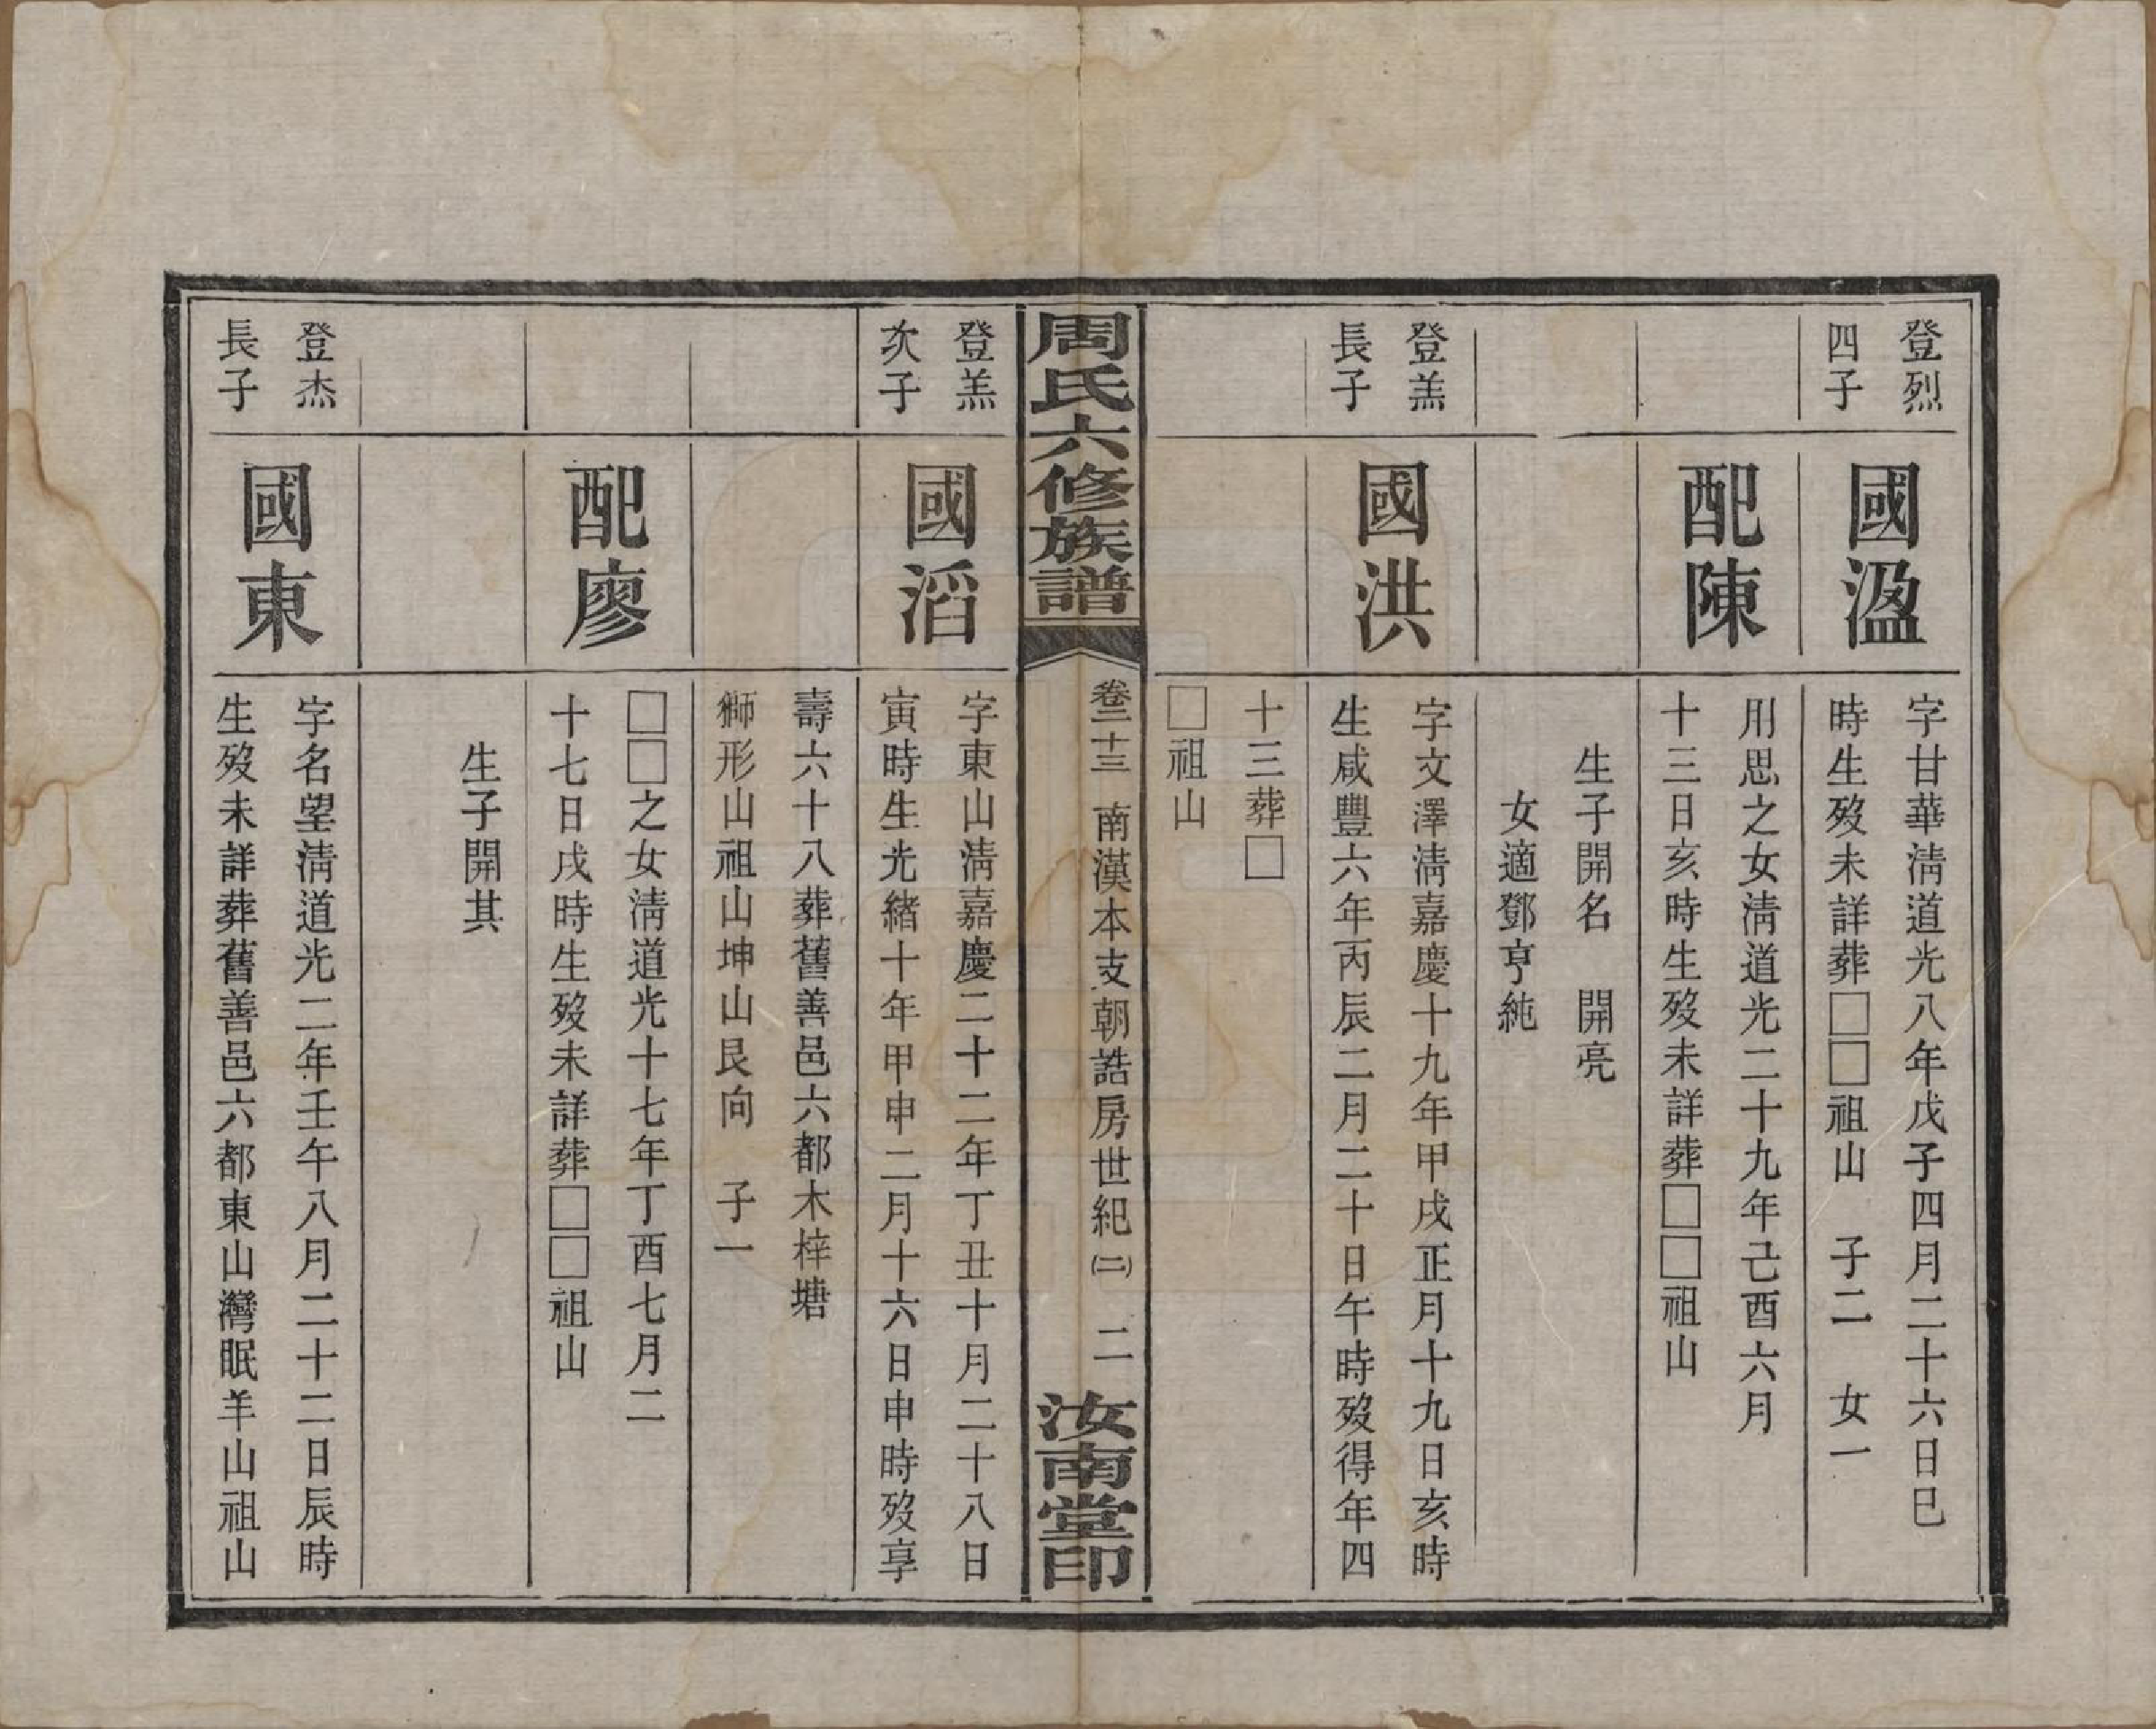 登烈
四子
國溋
字甘華清道光八年戊子四月二十六日巳
時生歿未詳葬□□祖山　子二　女一
配陳
用思之女清道光二十九年己酉六月
十三日亥時生歿未詳葬□□祖山
生子開名　開亮
女適鄧亨純
登羔
長子
國洪
字文澤清嘉慶十九年甲戌正月十九日亥時
生咸豐六年丙辰二月二十日午時歿得年四
十三葬□
□祖山
周氏六修族譜
卷二十三　南漢本支朝誥房世紀㈡　二
汝南堂印
登羔
次子
國滔
字東山清嘉慶二十二年丁丑十月二十八日
寅時生光緒十年甲申二月十六日申時歿享
壽六十八葬舊善邑六都木梓塘
獅形山祖山坤山艮向　子一
配廖
□□之女清道光十七年丁酉七月二
十七日戌時生歿未詳葬□□祖山
生子開其
登杰
長子
國東
字名望清道光二年壬午八月二十二日辰時
生歿未詳葬舊善邑六都東山灣眠羊山祖山